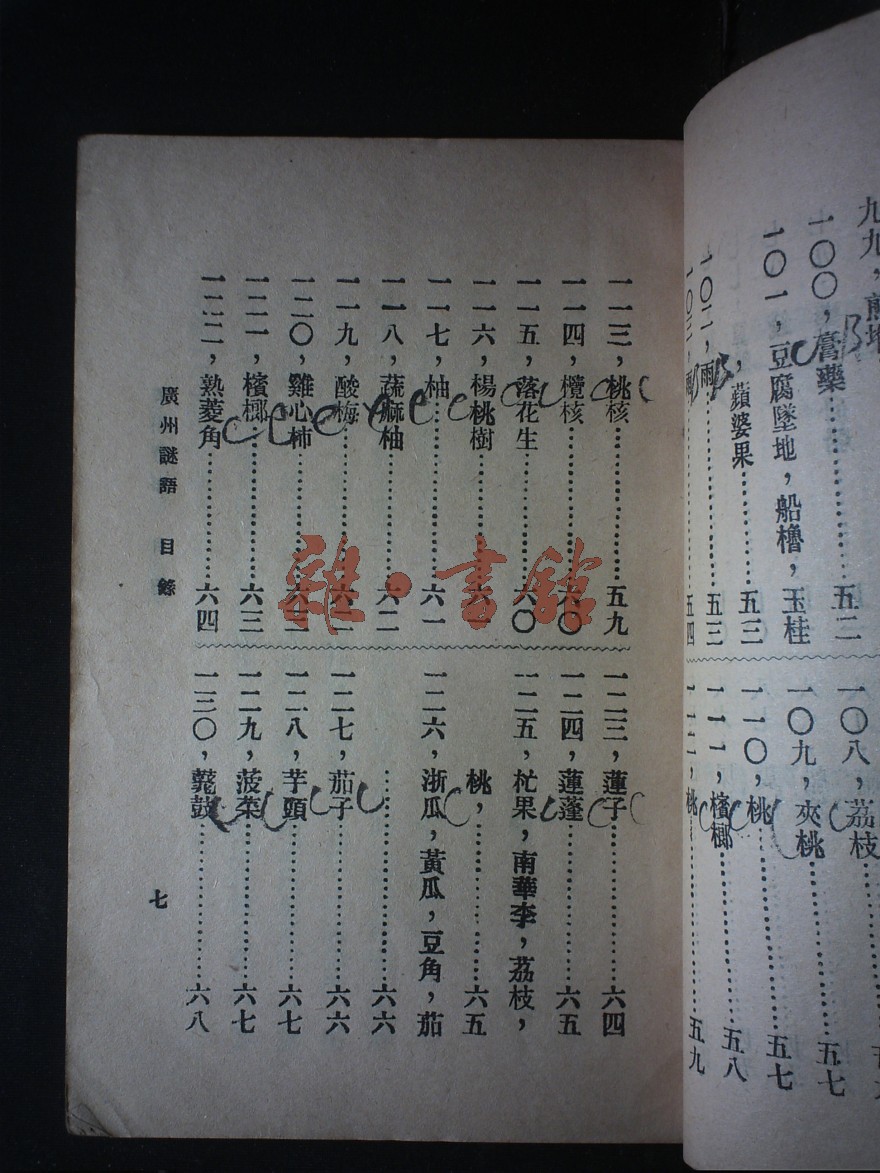 九九，煎堆
一〇〇，膏藥……五二
一〇一，豆腐墜地，船櫓，玉桂
，蘋婆果……五三
一〇二，雨……五三
一〇三，……五四
一〇八，荔枝……
一〇九，夾桃……五七
一一〇，桃……五七
一一一，檳榔……五八
一一二，桃……五九
一一三，桃核……五九
一一四，欖核……六〇
一一五，落花生……六〇
一一六，楊桃樹……六一
一一七，柚……六一
一一八，蔬蔴柚……六二
一一九，酸梅……六二
一二〇，雞心柿……六三
一二一，檳榔……六三
一二二，熟菱角……六四
一二三，蓮子……六四
一二四，蓮蓬……六五
一二五，杧果，南華李，荔枝，
桃，……六五
一二六，浙瓜，黃瓜，豆角，茄
……六六
一二七，茄子……六六
一二八，芋頭……六七
一二九，菠菜……六七
一三〇，鼓……六八
廣州謎語 目錄
七
雜·書館